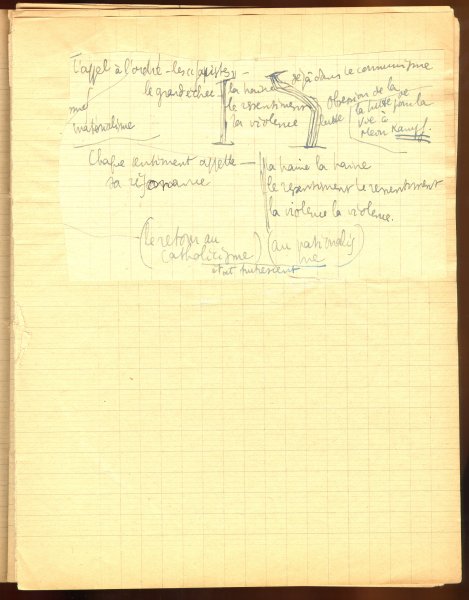 L'appel à l'ordre - les
le grand échec - la haine
déjà dans le communisme
le ressentiment
la violence
lutte
Obsession de la
lutte pour la
vie à
Mein Kampf.
irrationalisme
Chaque sentiment appelle — la haine la haine
sa résonance
le ressentiment le ressentiment
la violence la violence.
(le retour au
catholicisme)
(au nationalis
me)
état